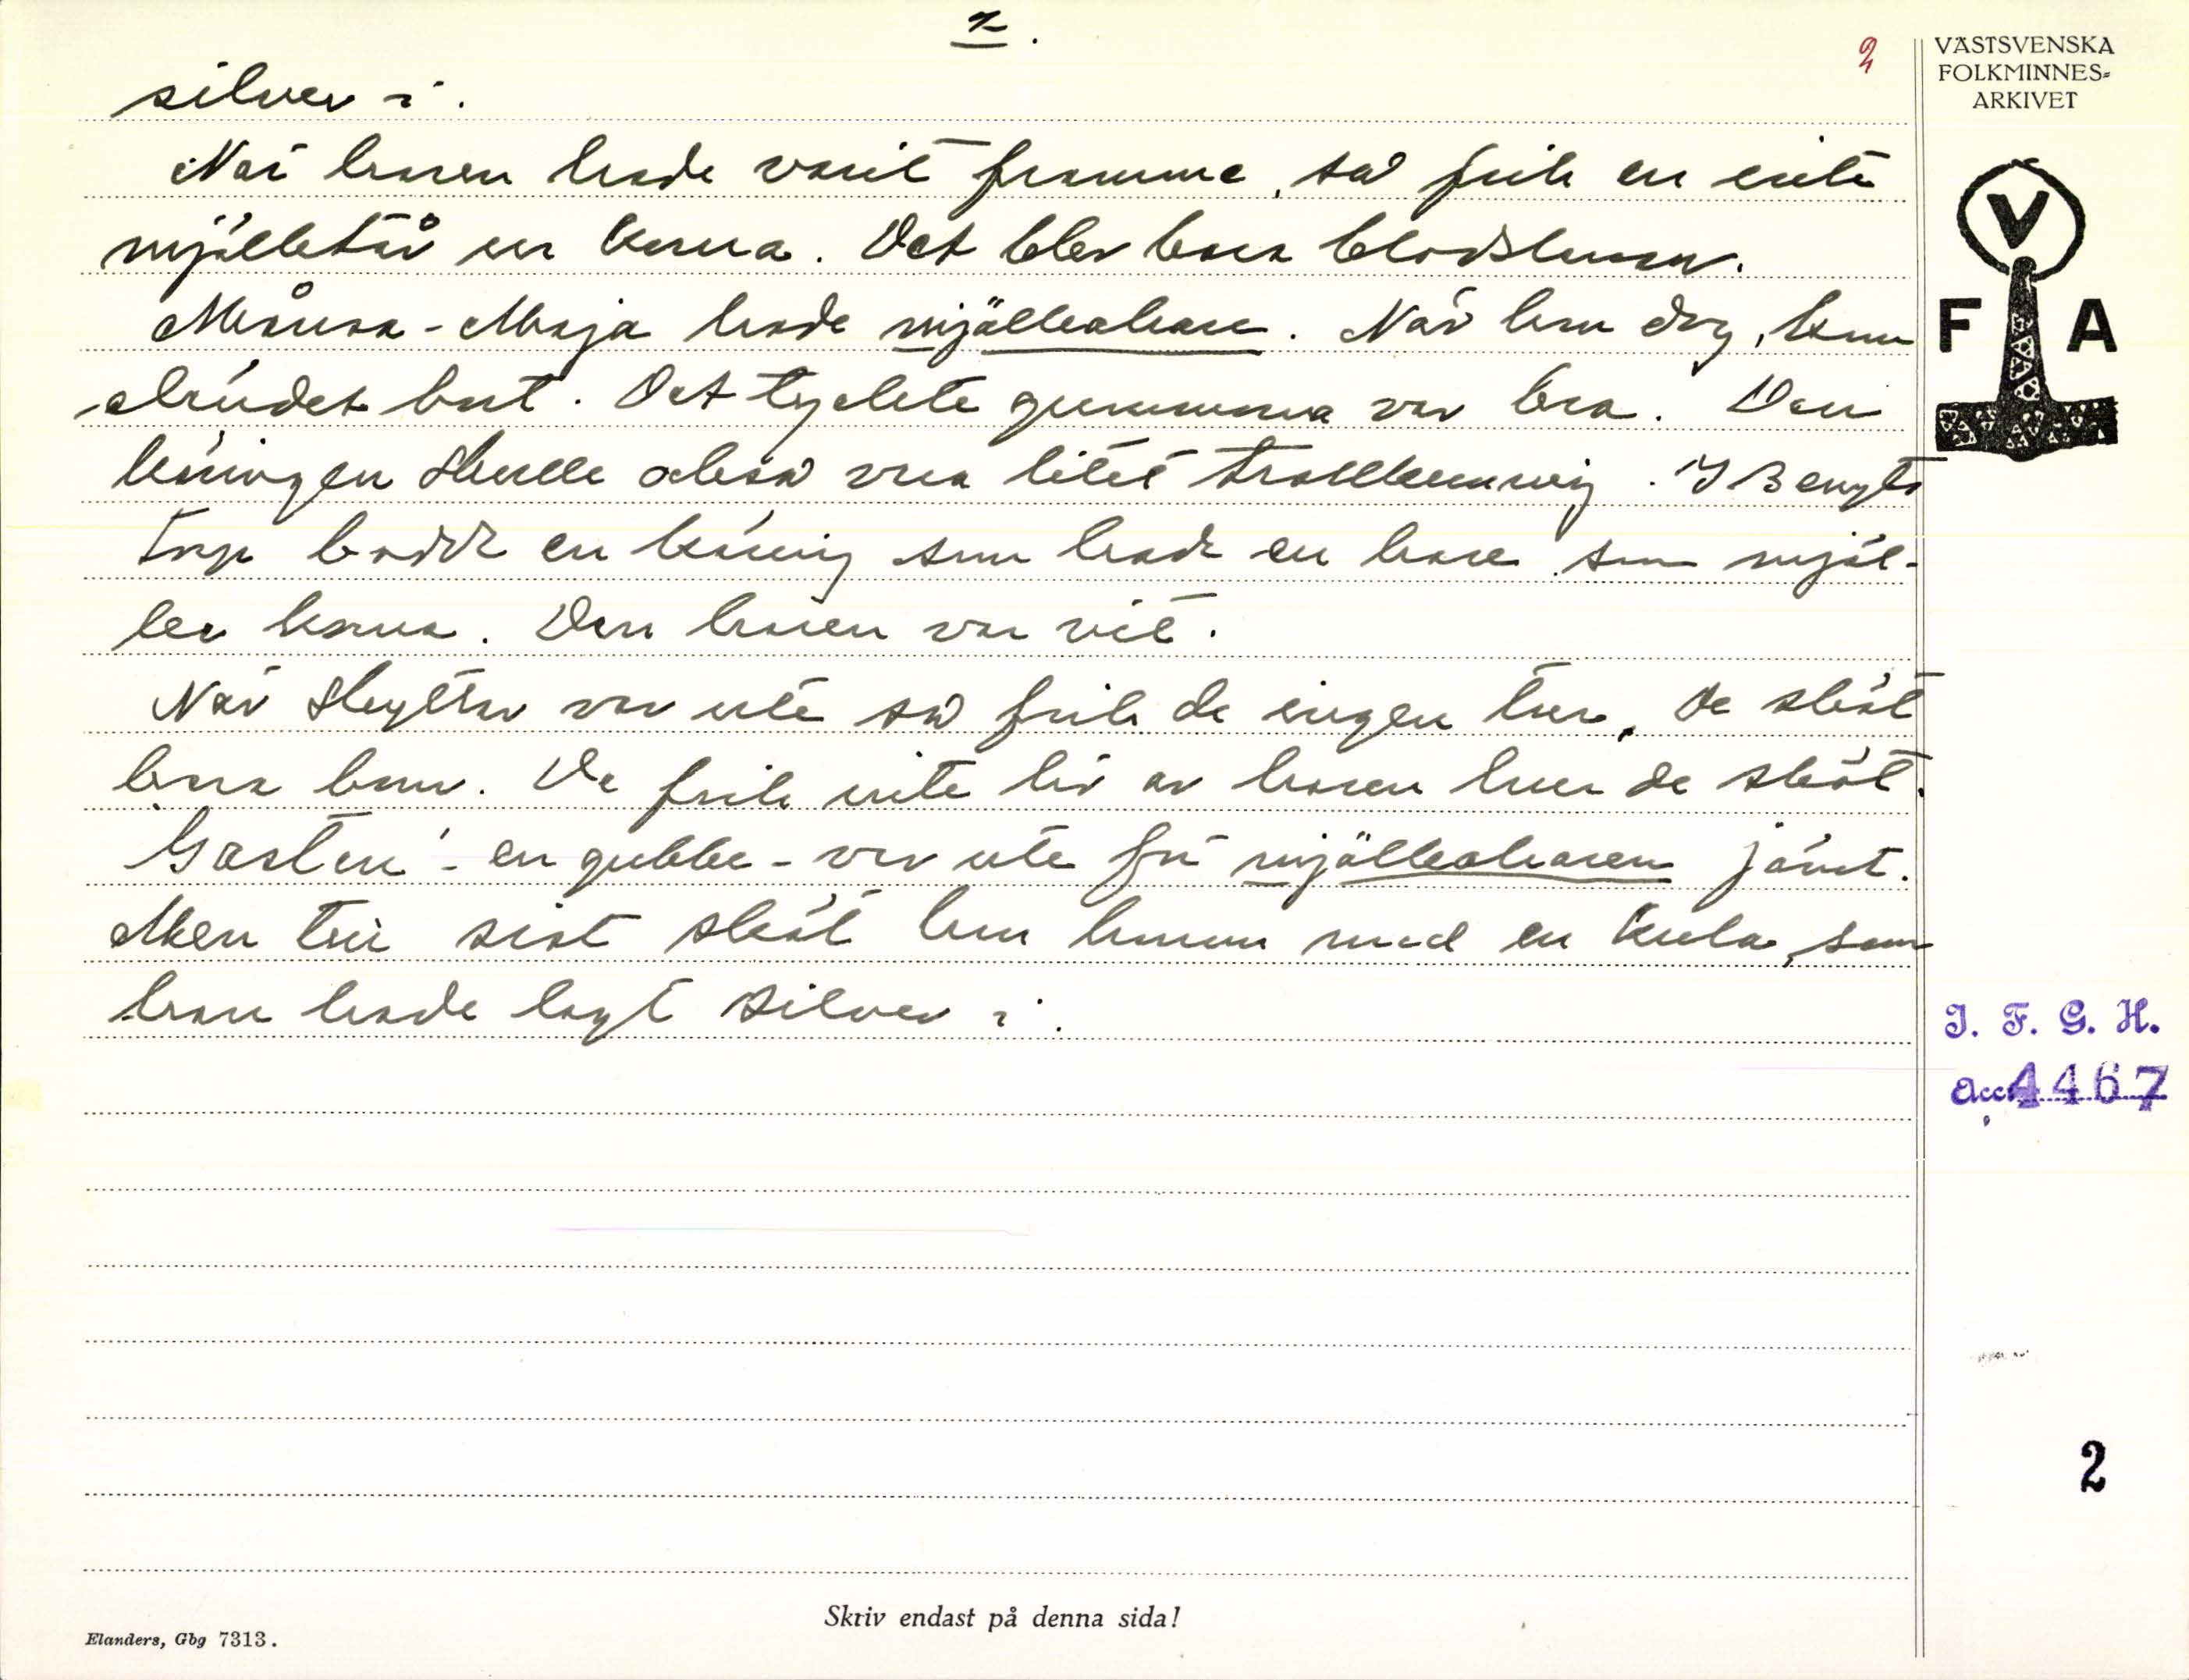 2.
2
silver i.
När haren hade varit framme, så fick en inte
mjölktår ur korna. Det blev bara blodslamsor.
Månsa-Maja hade mjölkahare. När hon dog, kom
eländet bort. Det tyckte gummorna var bra. Den
käringen skulle också vara litet trollkunnig. I Bengts
torp bodde en käring som hade en hare som mjöl-
ker korna. Den haren var vit.
När skyttar var ute så fick de ingen hare, de sköt
bara bom. De fick inte liv av haren hur de sköt.
Gasten - en gubbe - var ute för mjölkaharen jämt.
Men till sist sköt han honom med en kula, som
han hade lagt silver i.
VÄSTSVENSKA
FOLKMINNES=
ARKIVET
V
F A
I. F. G. H.
Acc. 4467
2
Skriv endast på denna sida!
Elanders, Gbg 7313.